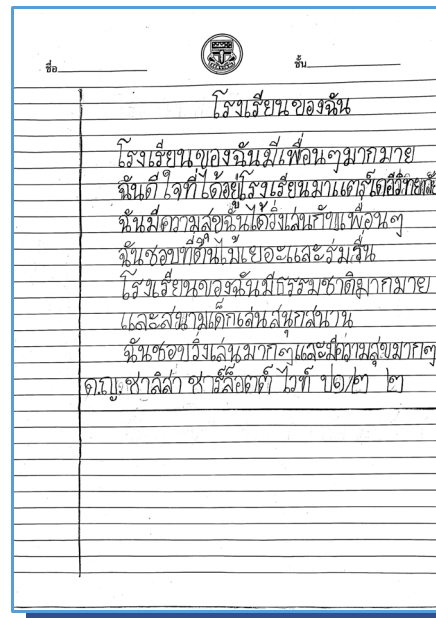 ชื่อ ชั้น
โรงเรียนของฉัน
โรงเรียนของฉันมีเพื่อนๆมากมาย
ฉันดีใจที่ได้อยู่โรงเรียนมาแตร์เดอีวิทยาลัย
ฉันมีความสุขฉันได้วิ่งเล่นกับเพื่อนๆ
ฉันชอบที่ต้นไม้เยอะและร่มรื่น
โรงเรียนของฉันมีธรรมชาติมากมาย
และสนามเด็กเล่นสนุกสนาน
ฉันชอบวิ่งเล่นมากๆและมีความสุขมากๆ
ด.ญ. ชาลิสา ชาร์ล็อตต์ ไวท์ ป๑/๓ ๒